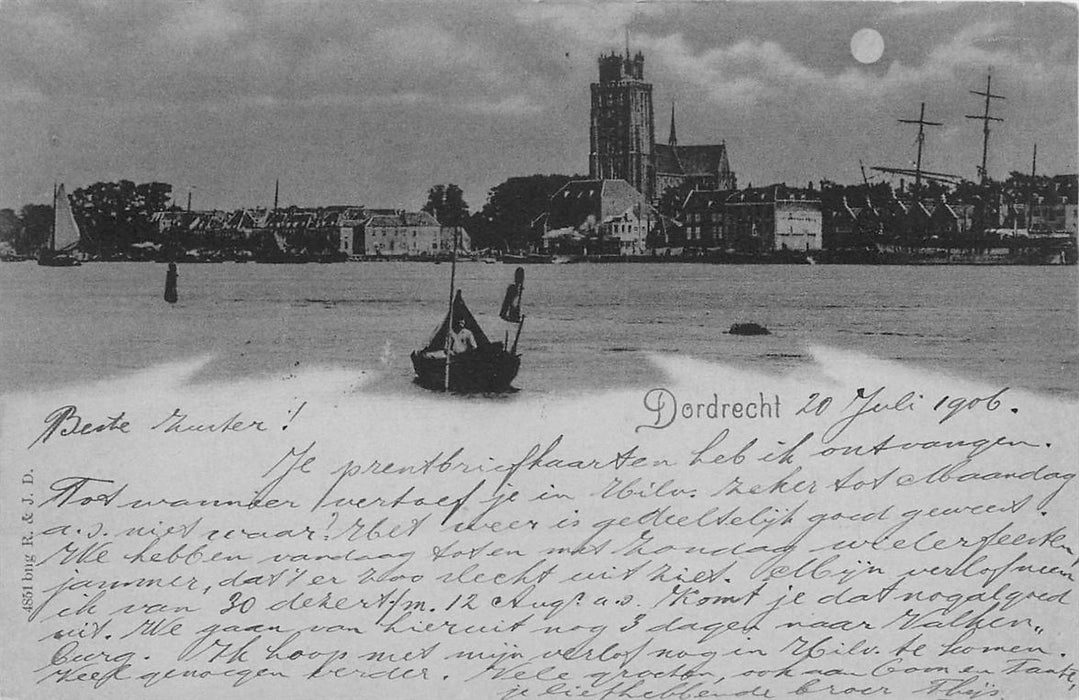 Dordrecht 20 Juli 1906.
Beste Zuster!
Je prentbriefkaarten heb ik ontvangen.
Tot wanneer vertoef je in Hilv. zeker tot Maandag
a.s. niet waar? Het weer is gedeeltelijk goed geweest.
We hebben vandaag tot en met Zondag wielerfeesten,
jammer, dat 't er zoo slecht uit ziet. Mijn verlof neem
ik van 30 dezer t/m. 12 Augs. a.s. Komt je dat nogal goed
uit. We gaan van hieruit nog 3 dagen naar Valken„
burg. Ik hoop met mijn verlof nog in Hilv. te komen.
Veel genoegen verder. Vele groeten, ook aan Oom en Tante,
je liefhebbende broer
4851 bng R. & J. D.